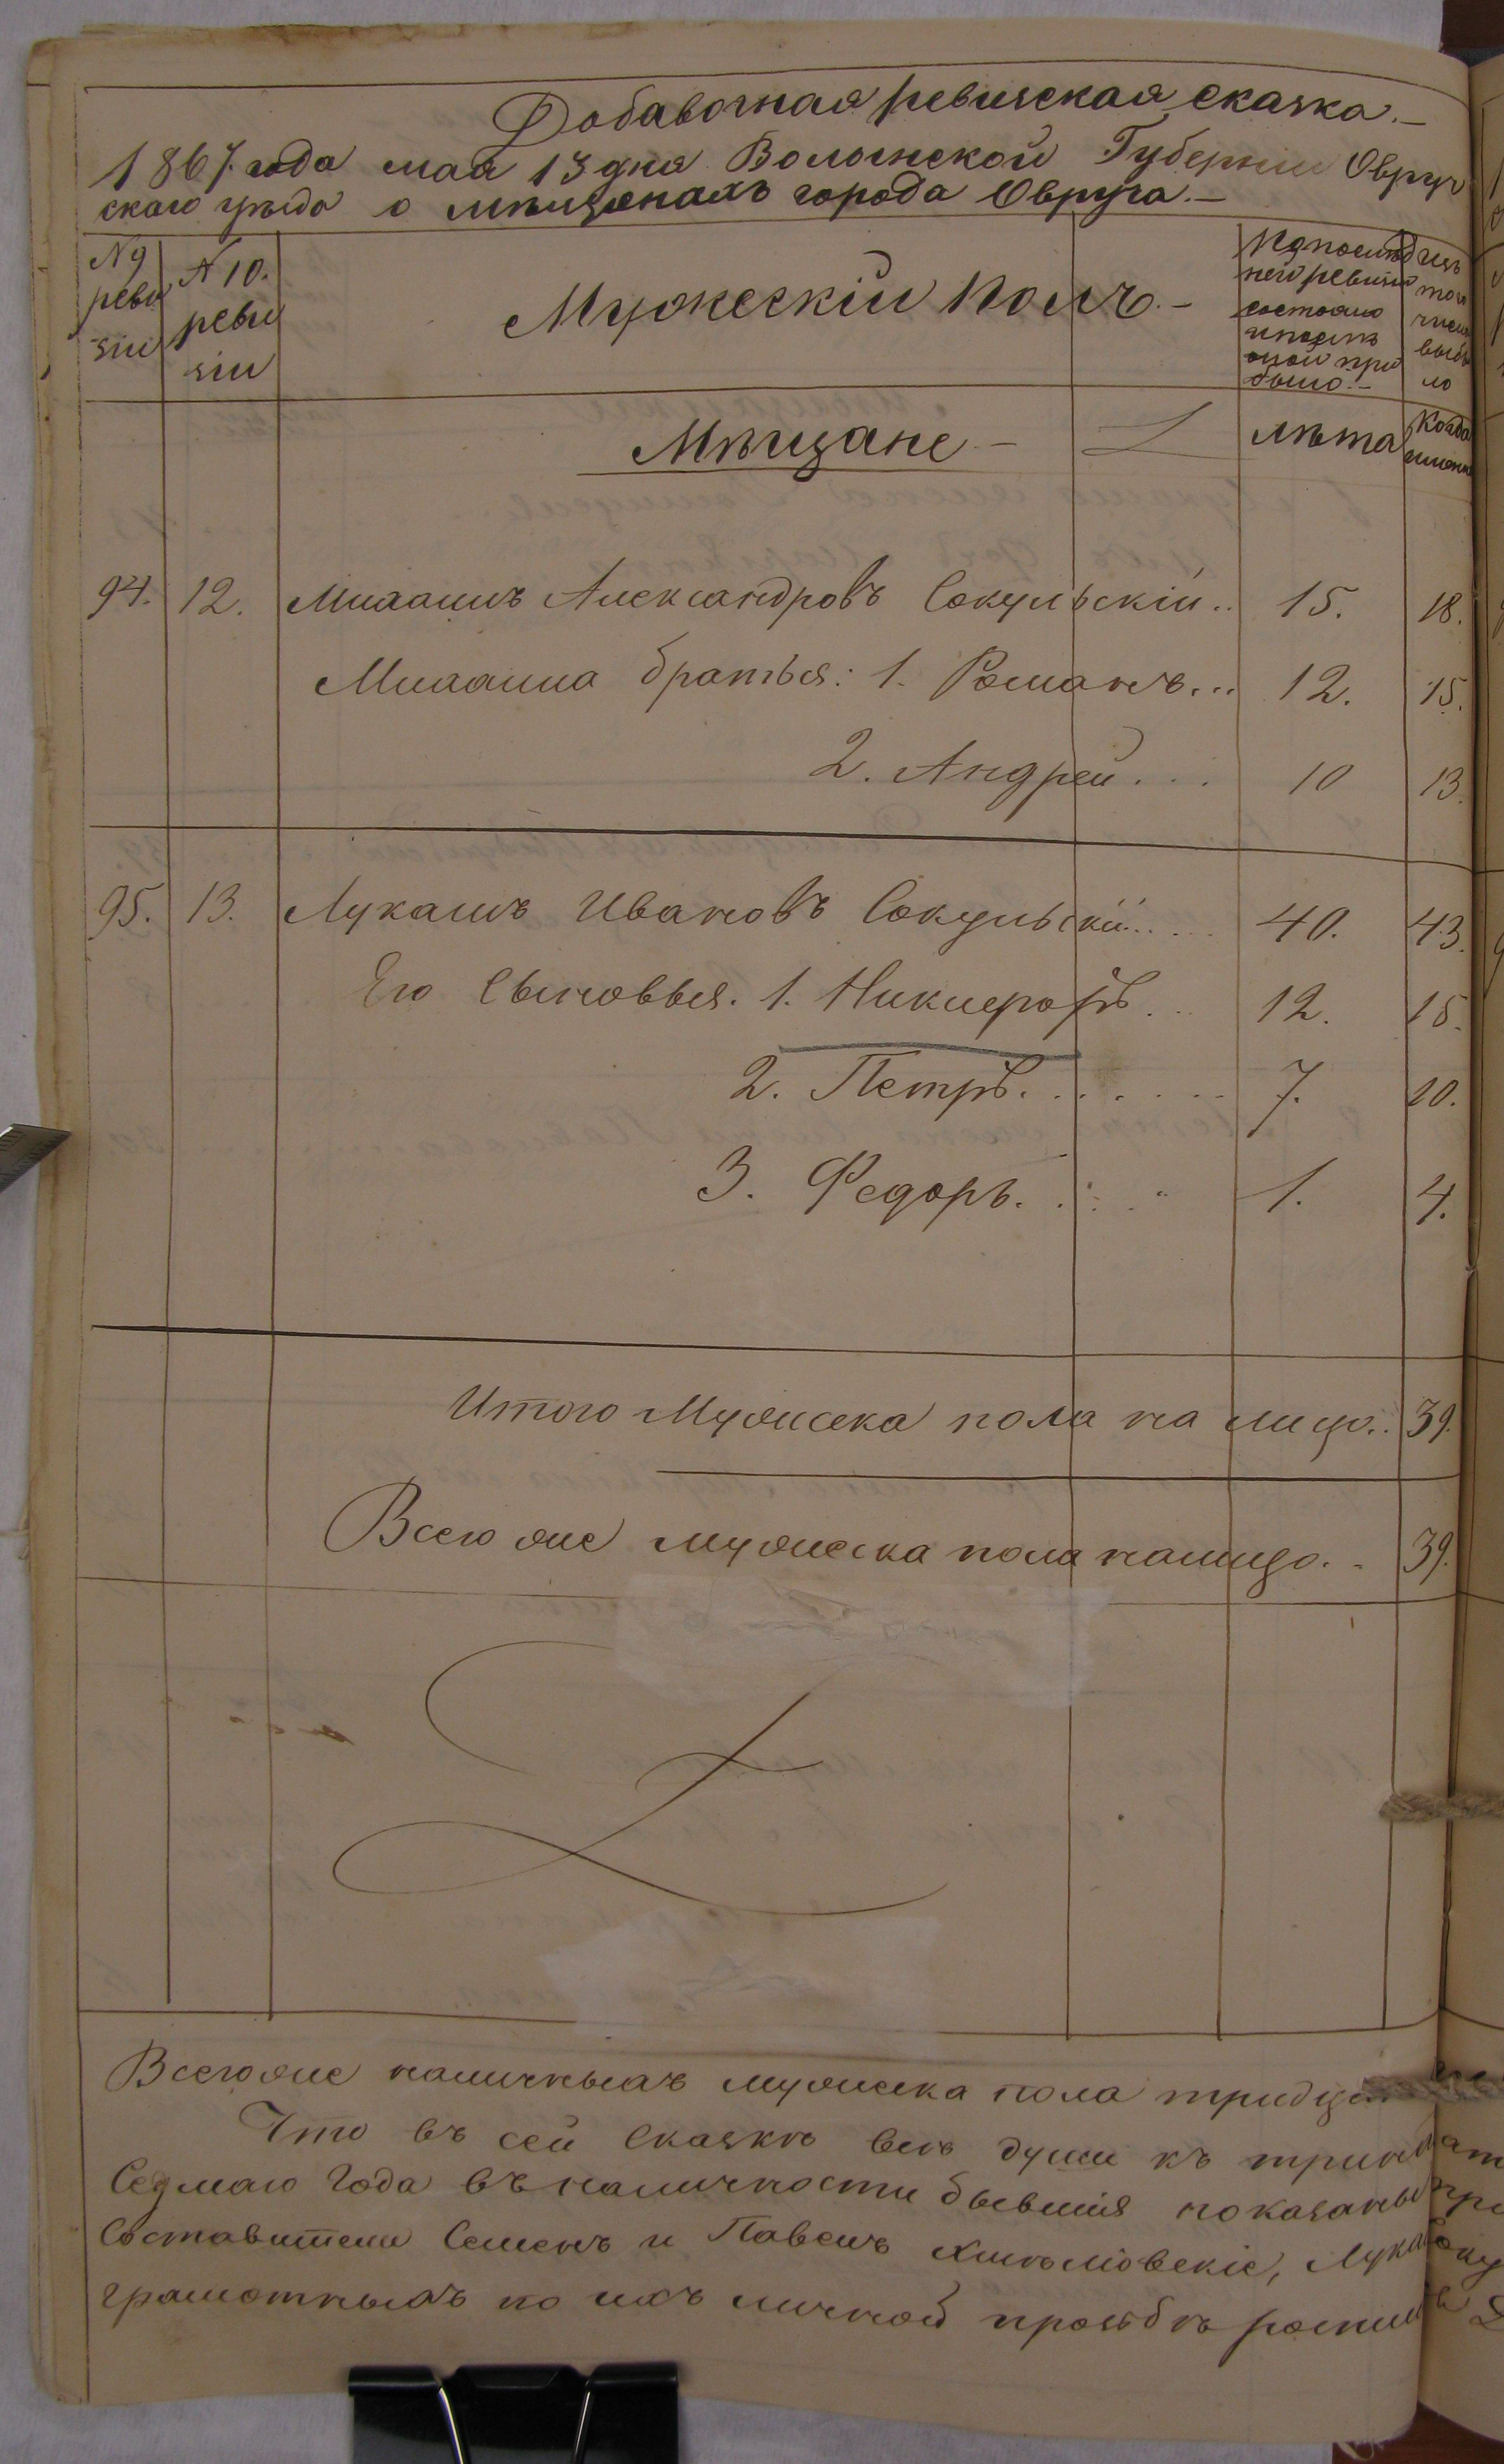 Добавочная ревизская сказка.—
1867 года мая 13 дня Волынской Губерніи Овруч
скаго уѣзда о мѣщанахъ города Овруча.—
№ 9 реви зіи
№ 10. реви зіи
Мужескій полъ.—
По послѣд
ней ревизіи
состояло
и послѣ
оной при
было.—
изъ
того
числа
выбы
ло
Мѣщане—
лѣта
Когда
именно
94. 12. Михаилъ Александровъ Сокульскій.. 15. 18.
Михаила братья: 1. Романъ... 12. 15.
2. Андрей... 10 13.
95. 13. Лукашъ Ивановъ Сокульскій..... 40. 43.
Его Сыновья. 1. Никифоръ... 12. 15.
2. Петръ........ 7. 10.
3. Федоръ..... 1. 4.
Итого Мужеска пола на лицо.. 39.
Всего же мужеска пола налицо.. 39.
Всего же наличныхъ мужеска пола тридца
Что въ сей Сказкѣ всѣ души къ трин
Седмаго Года въ наличности бывшія показаны
Составители Семенъ и Павелъ Лука
грамотныхъ по ихъ личной прозьбѣ роспи